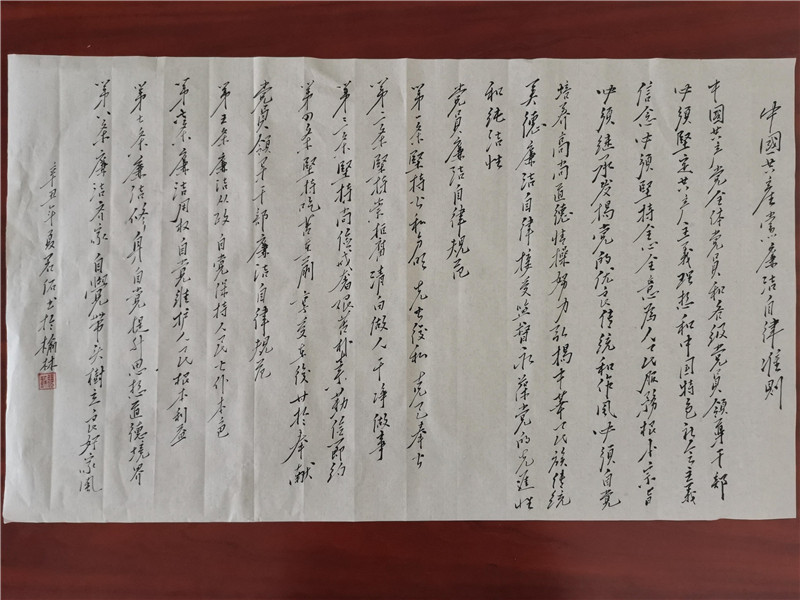 中國共产党廉洁自律准则
中國共产党全体党员和各级党员领导干部
必须堅定共产主義理想和中国特色社会主義
信念必须堅持全心全意为人民服務根本宗旨
必须继承发揚党的优良传統和作風必须自觉
培养高尚道德情操努力弘揚中華民族传統
美德廉洁自律接受监督永葆党的先進性
和纯洁性
党员廉洁自律規范
第一条堅持公私分明先公后私克己奉公
第二条堅持崇廉拒腐清白做人干净做事
第三条堅持尚俭戒奢艰苦朴素勤俭節约
第四条堅持吃苦在前享受在后甘於奉献
党員领导干部廉洁自律規范
第五条廉洁从政自觉保持人民公仆本色
第六条廉洁用权自觉维护人民根本利益
第七条廉洁修身自觉提升思想道德境界
第八条廉洁齐家自觉带头樹立良好家風
辛丑年夏 书於榆林